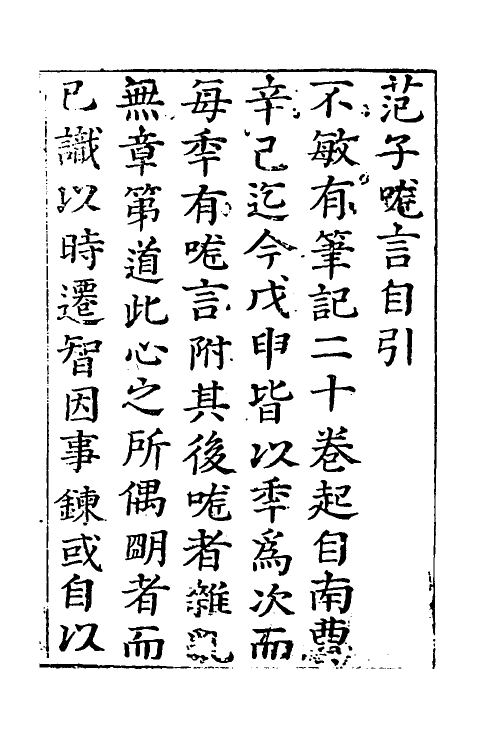 范子哤言自引
不敏有筆記二十卷起自南曹
辛己迄今戊申皆以秊爲次而
每秊有哤言附其後哤者雜亂
無章第道此心之所偶明者而
已識以時遷智因事鍊或自以